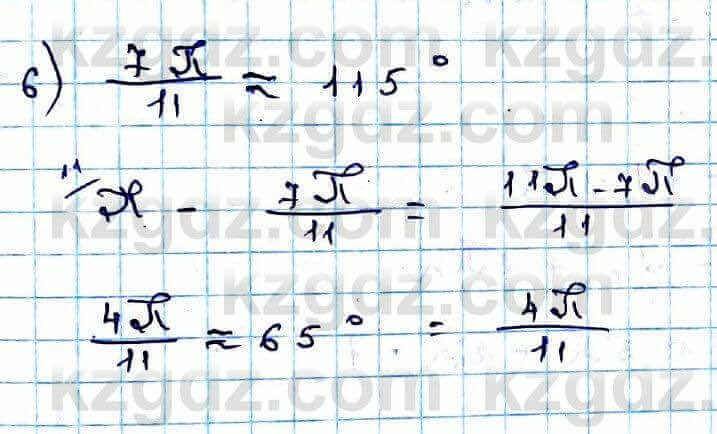 б) 7π/11 ≈ 115°
11/ π - 7π/11 = 11π - 7π/11
4π/11 ≈ 65° = 4π/11
kzgdz.com kzgdz.com
kzgdz.com
kzgdz.com kzgdz.com
kzgdz.com
kzgdz.com kzgdz.com